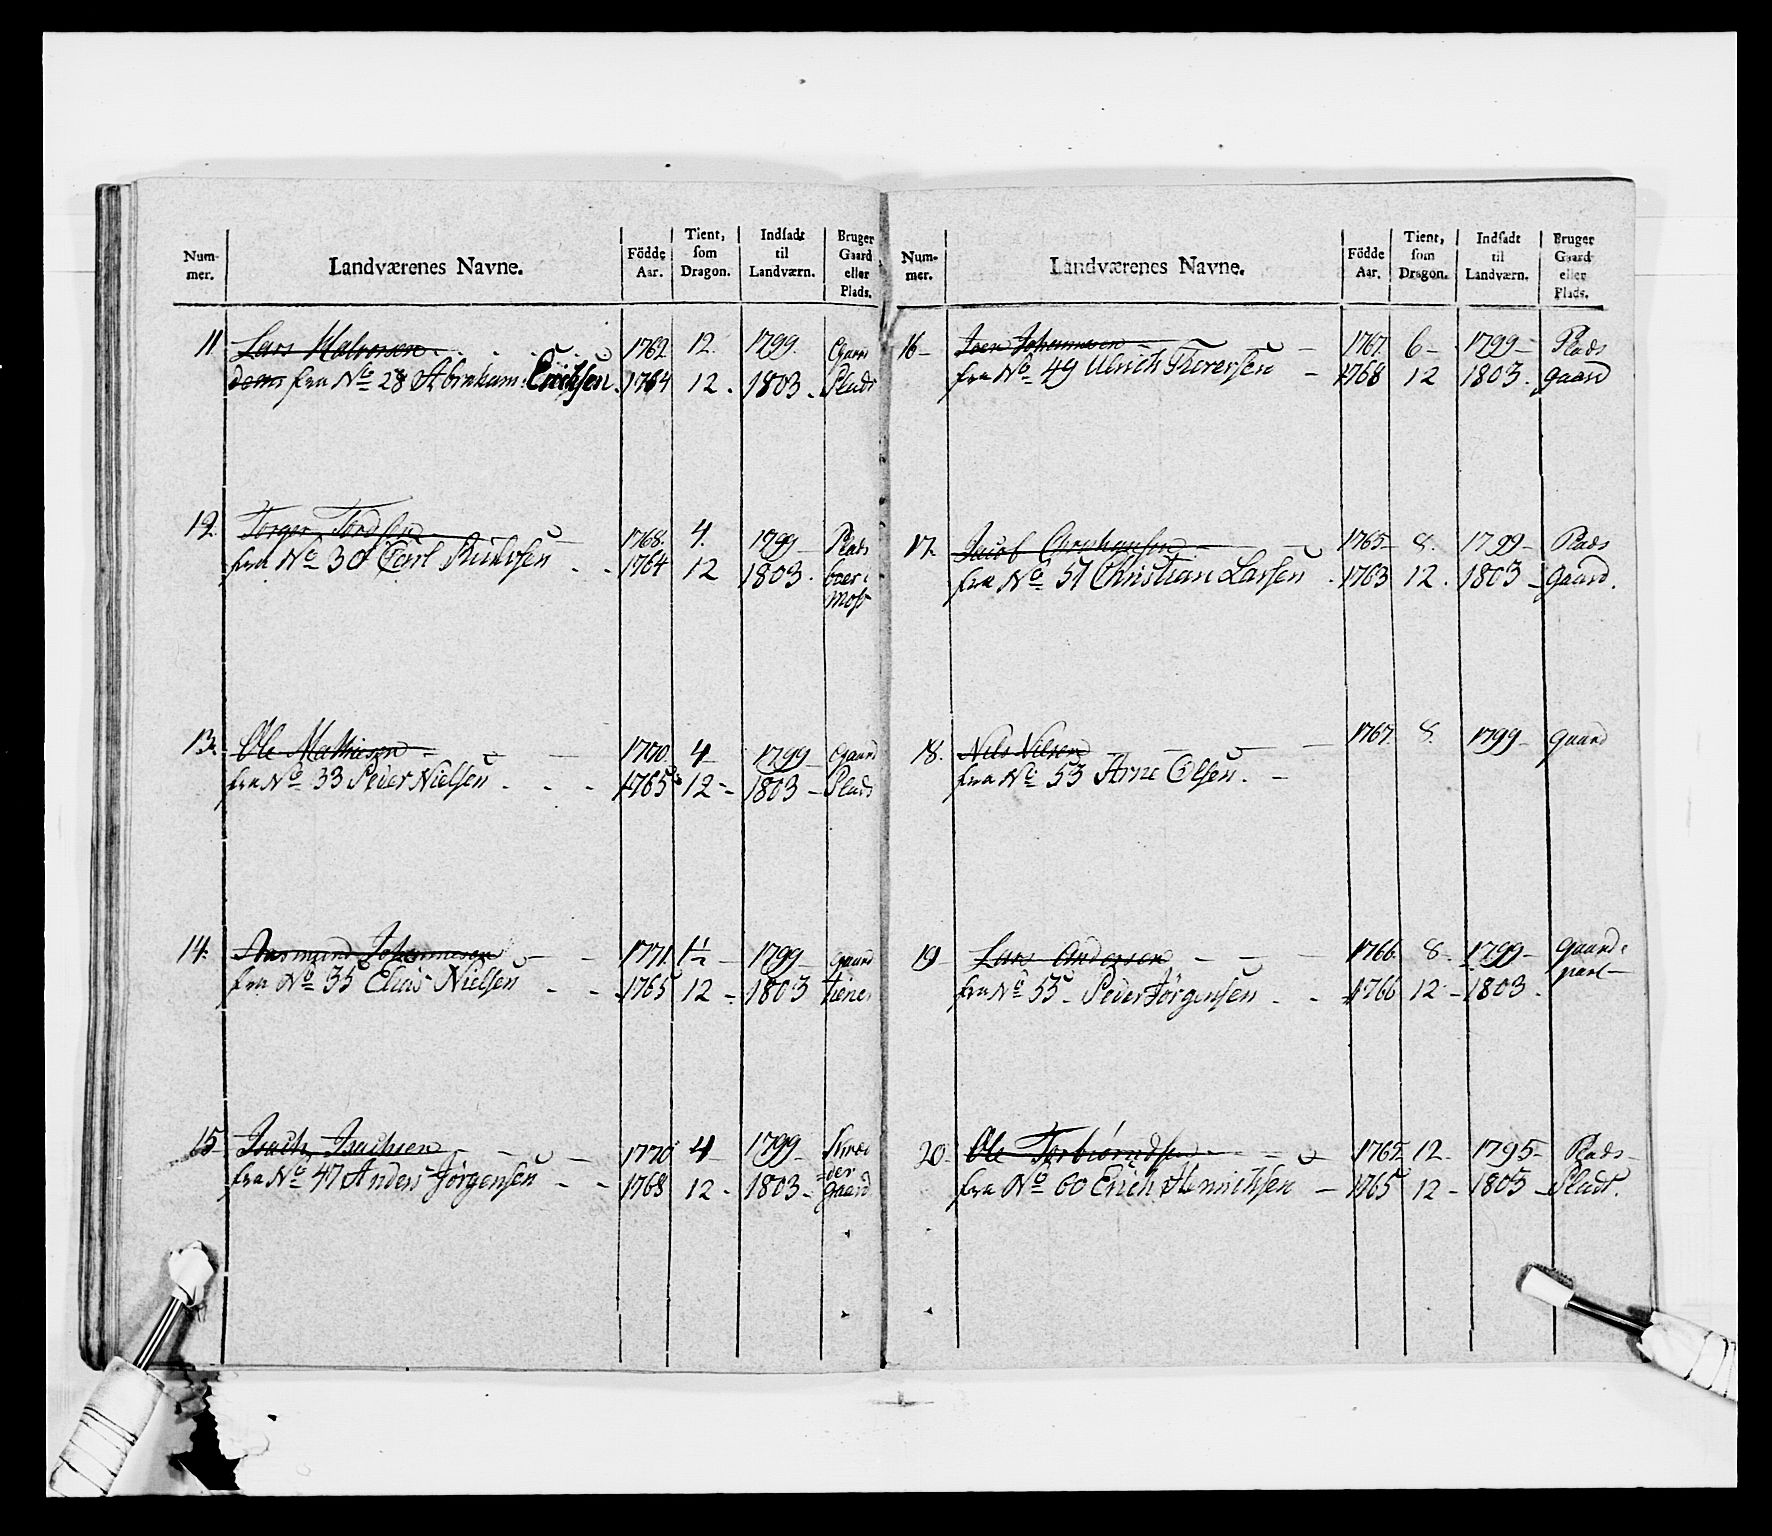 Num-mer. | Landværenes Navne. | Födde Aar. | Tient, som Dragon. | Indsadt til Landværn. | Bruger Gaard eller Plads.
11 Lars Halvorsen 1762. 12. 1799. Gaard
fra No 28 Abraham Erichsen. 1764 12. 1803. Plads
12. Torger Tordsen 1768. 4. 1799 Plads
fra No 30 Carl 1764 12 1803.
13. Ole Mathiesen 1770. 4 1799 Gaard
fra No 33 Peder Nielsen 1765 12 1803 Plads
14. Aasmund Johannesen 1771. 1½ 1799 Gaard
fra No 35 Elias Nielsen 1765 12 1803 tiener
15 Isach Isachsen 1770 4 1799
fra No 47 Anders Jörgensen 1768 12 1803 gaard
Num-mer. | Landværenes Navne. | Födde Aar. | Tient, som Dragon. | Indsadt til Landværn. | Bruger Gaard eller Plads.
16 Joen Johannesen 1767. 6 1799 Plads
fra No 49 Ulrich Thorersen 1768 12 1803. gaard
17. Jacob 1765 8. 1799 Plads
fra No 51 Christian Larsen 1763 12. 1803 gaard.
18. Nils Nilsen 1767. 8. 1799 gaard
fra No 53 Arne Olsen.
19 Lars Andersen 1766. 8 1799 gaard
part
fra No 55 Peder Jörgensen 1766 12 1803.
20. Ole Torbiörnsen 1765 12 1795 Plads
fra No 60 Erich Henrichsen 1765 12 1803 Plads.